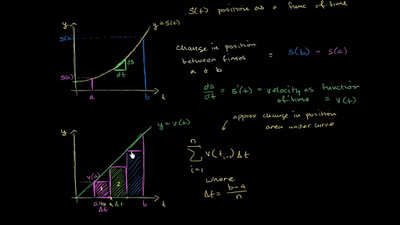 S(t) position as a func of time
y
y=s(t)
S(b)
S(a)
ds
dt
a
b
t
change in position
between times
a + b
= S(b) - S(a)
ds/dt = s'(t) = velocity as function
of time = v(t)
approx change in position
area under curve
y
y=v(t)
v(a)
2
a
b
t
Δt
Δt
n
Σ v(t_{i-1}) Δt
i=1
where
Δt = b-a/n